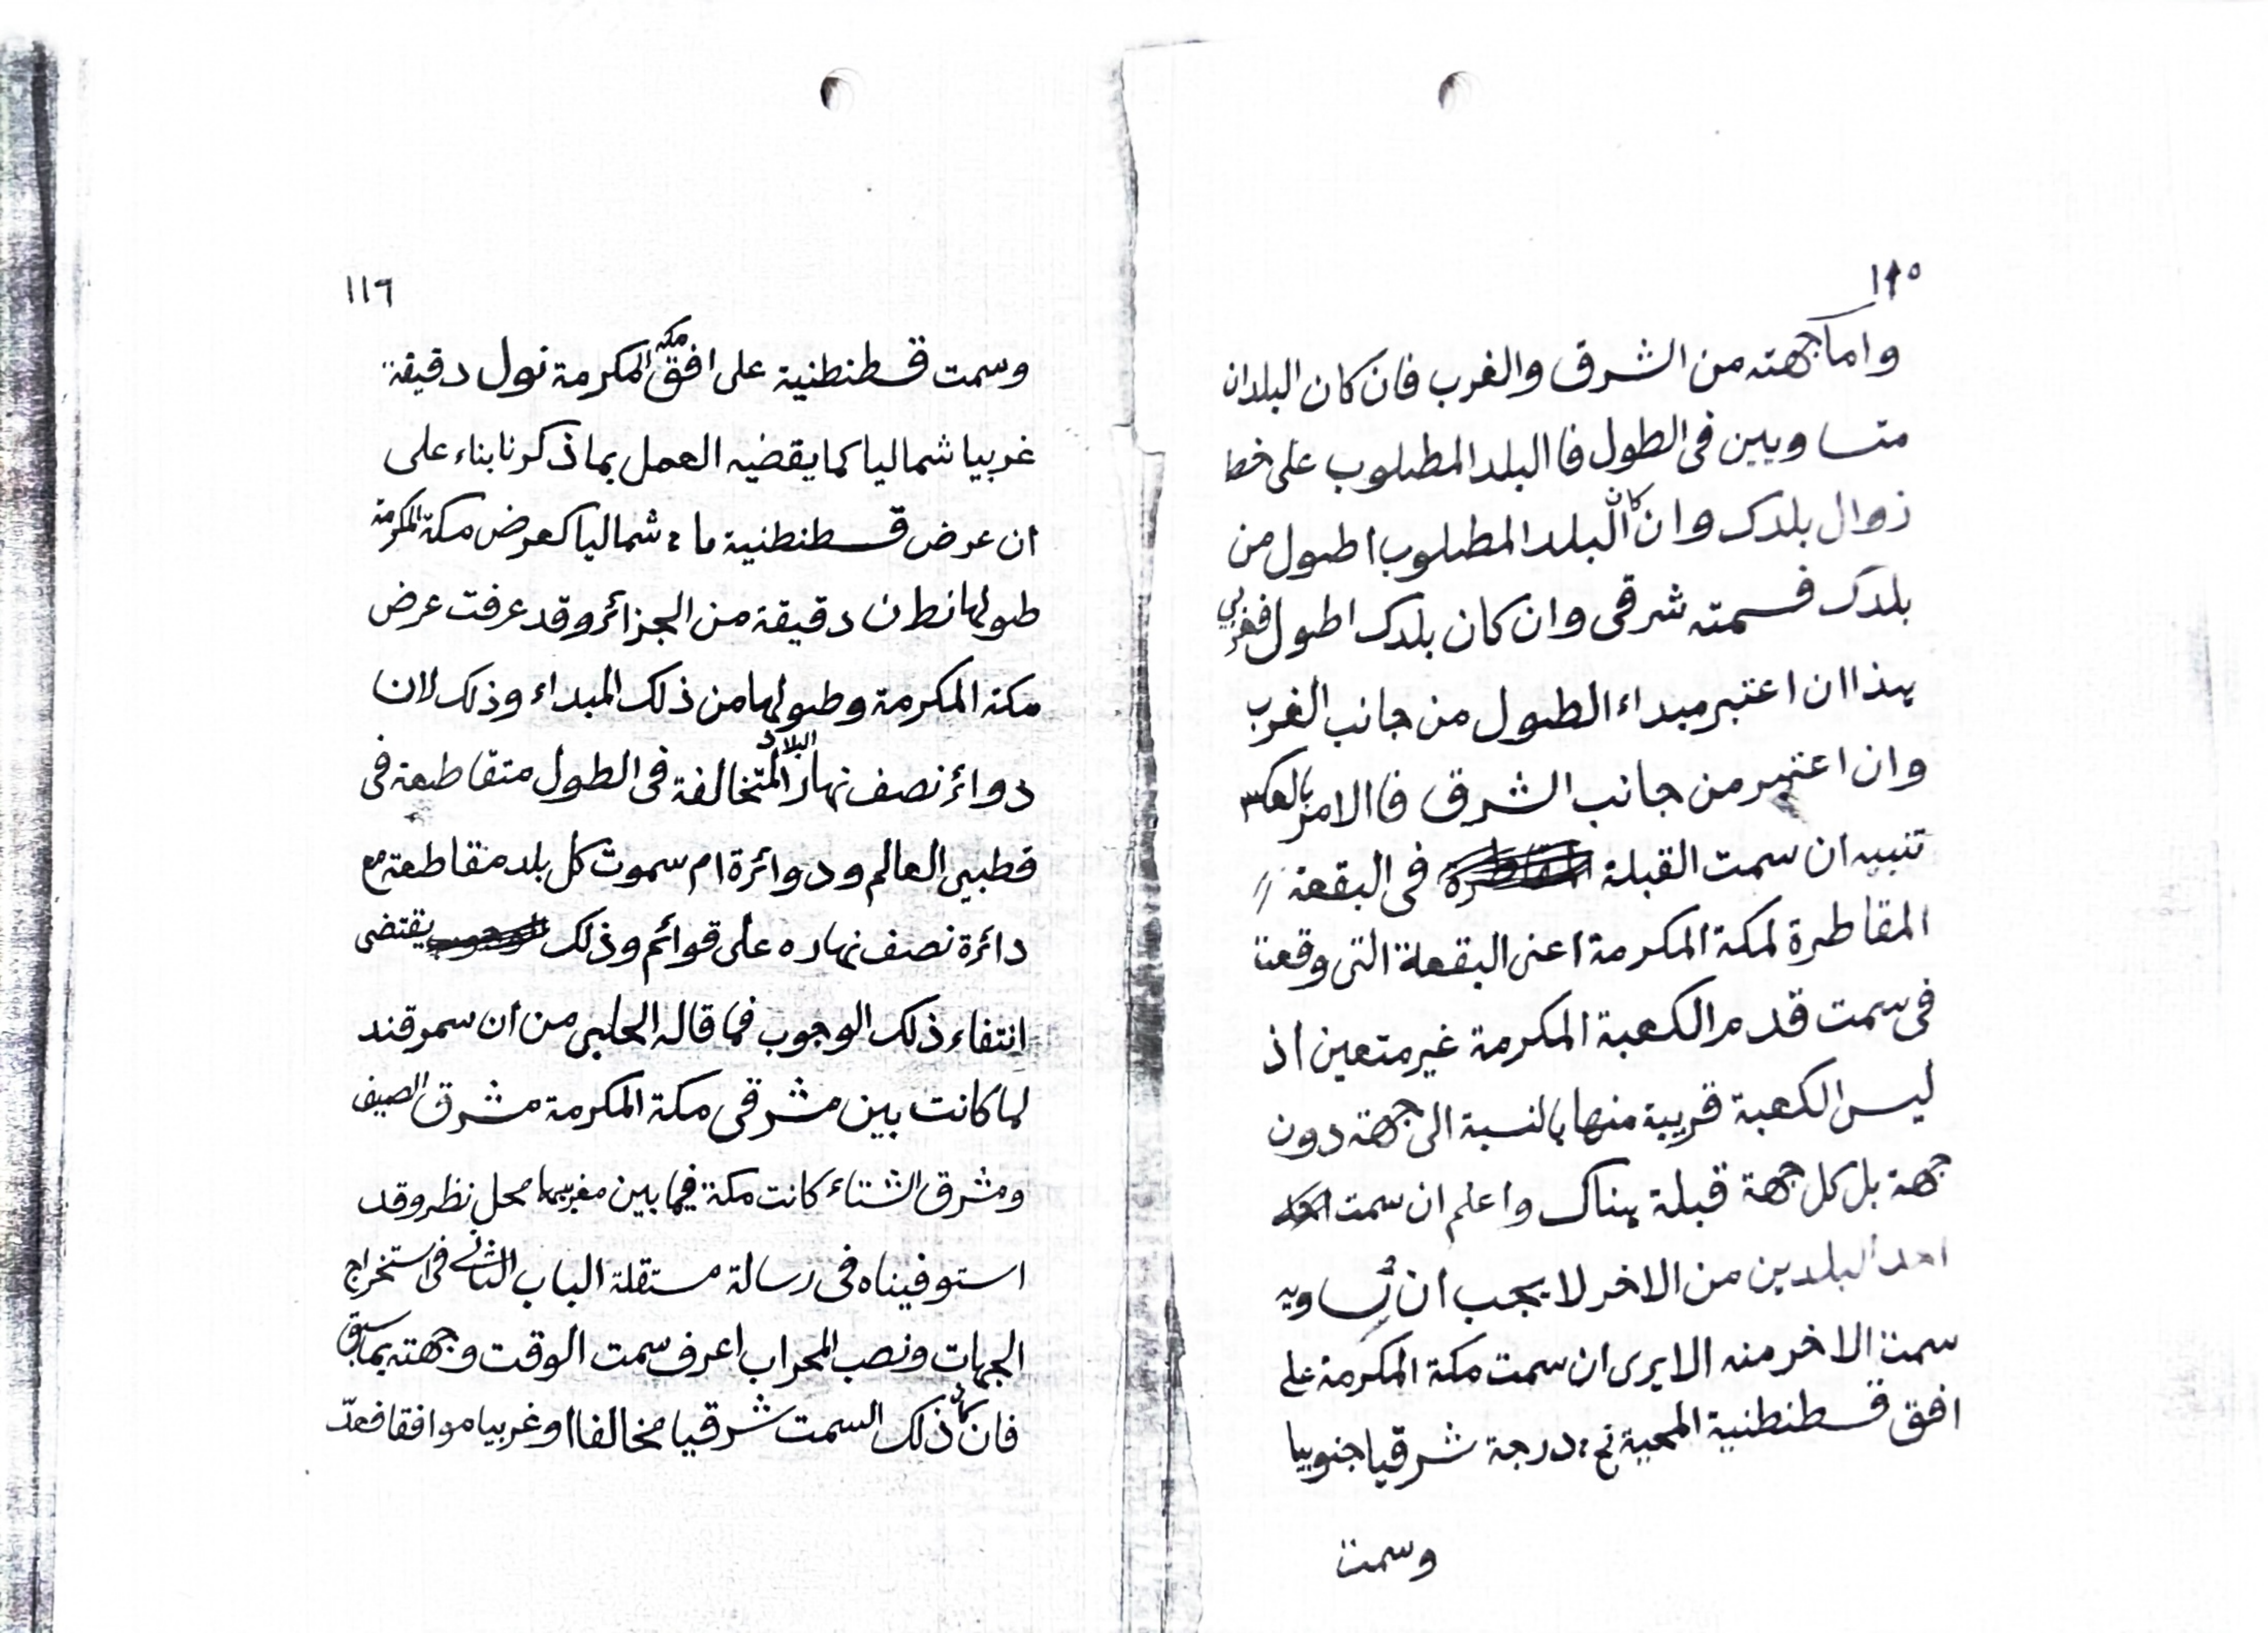 ١١٥
واما جهته من الشرق والغرب فان كان البلدان
متساويين فى الطول فا البلد المطلوب على خط
زوال بلدك وان كان البلد المطلوب اطول من
بلدك فسمته شرقى وان كان بلدك اطول فغربي
هذا ان اعتبر مبداء الطول من جانب الغرب
وان اعتبر من جانب الشرق فا الامر بالعكس
تنبيه ان سمت القبلة فى البقعة
المقاطرة لمكة المكرمة اعنى البقعة التى وقعت
فى سمت قدم الكعبة المكرمة غير متعين اذ
ليس الكعبة قريبة منها بالنسبة الى جهة دون
جهة بل كل جهة قبلة هناك واعلم ان سمت
احد البلدين من الاخر لا يجب ان يساويه
سمت الاخر منه الا يرى ان سمت مكة المكرمة على
افق قسطنطنية المحمية درجة شرقيا جنوبيا
وسمت
١١٦
وسمت قسطنطنية على افق مكه المكرمة نول دقيقة
غربيا شماليا كما يقضيه العمل بما ذكرنا بناء على
ان عرض قسطنطنية ما شماليا كعرض مكة المكرمة
طولها نط ن دقيقة من الجزائر وقد عرفت عرض
مكة المكرمة وطولها من ذلك المبداء وذلك لان
دوائر نصف نهار البلاد المتخالفة فى الطول متقاطعة فى
قطبي العالم ودوائرة ام سموت كل بلد متقاطعة مع
دائرة نصف نهاره على قوائم وذلك يقتضى
انتفاء ذلك الوجوب فما قاله الحلبى من ان سمرقند
لما كانت بين مشرقى مكة المكرمة مشرق الصيف
ومشرق الشتاء كانت مكة فيما بين مغربيها محل نظر وقد
استوفيناه فى رسالة مستقلة الباب الثانى فى استخراج
الجهات ونصب المحراب اعرف سمت الوقت وجهته بما سبق
فان كان ذلك السمت شرقيا مخالفا او غربيا موافقا فعدّ